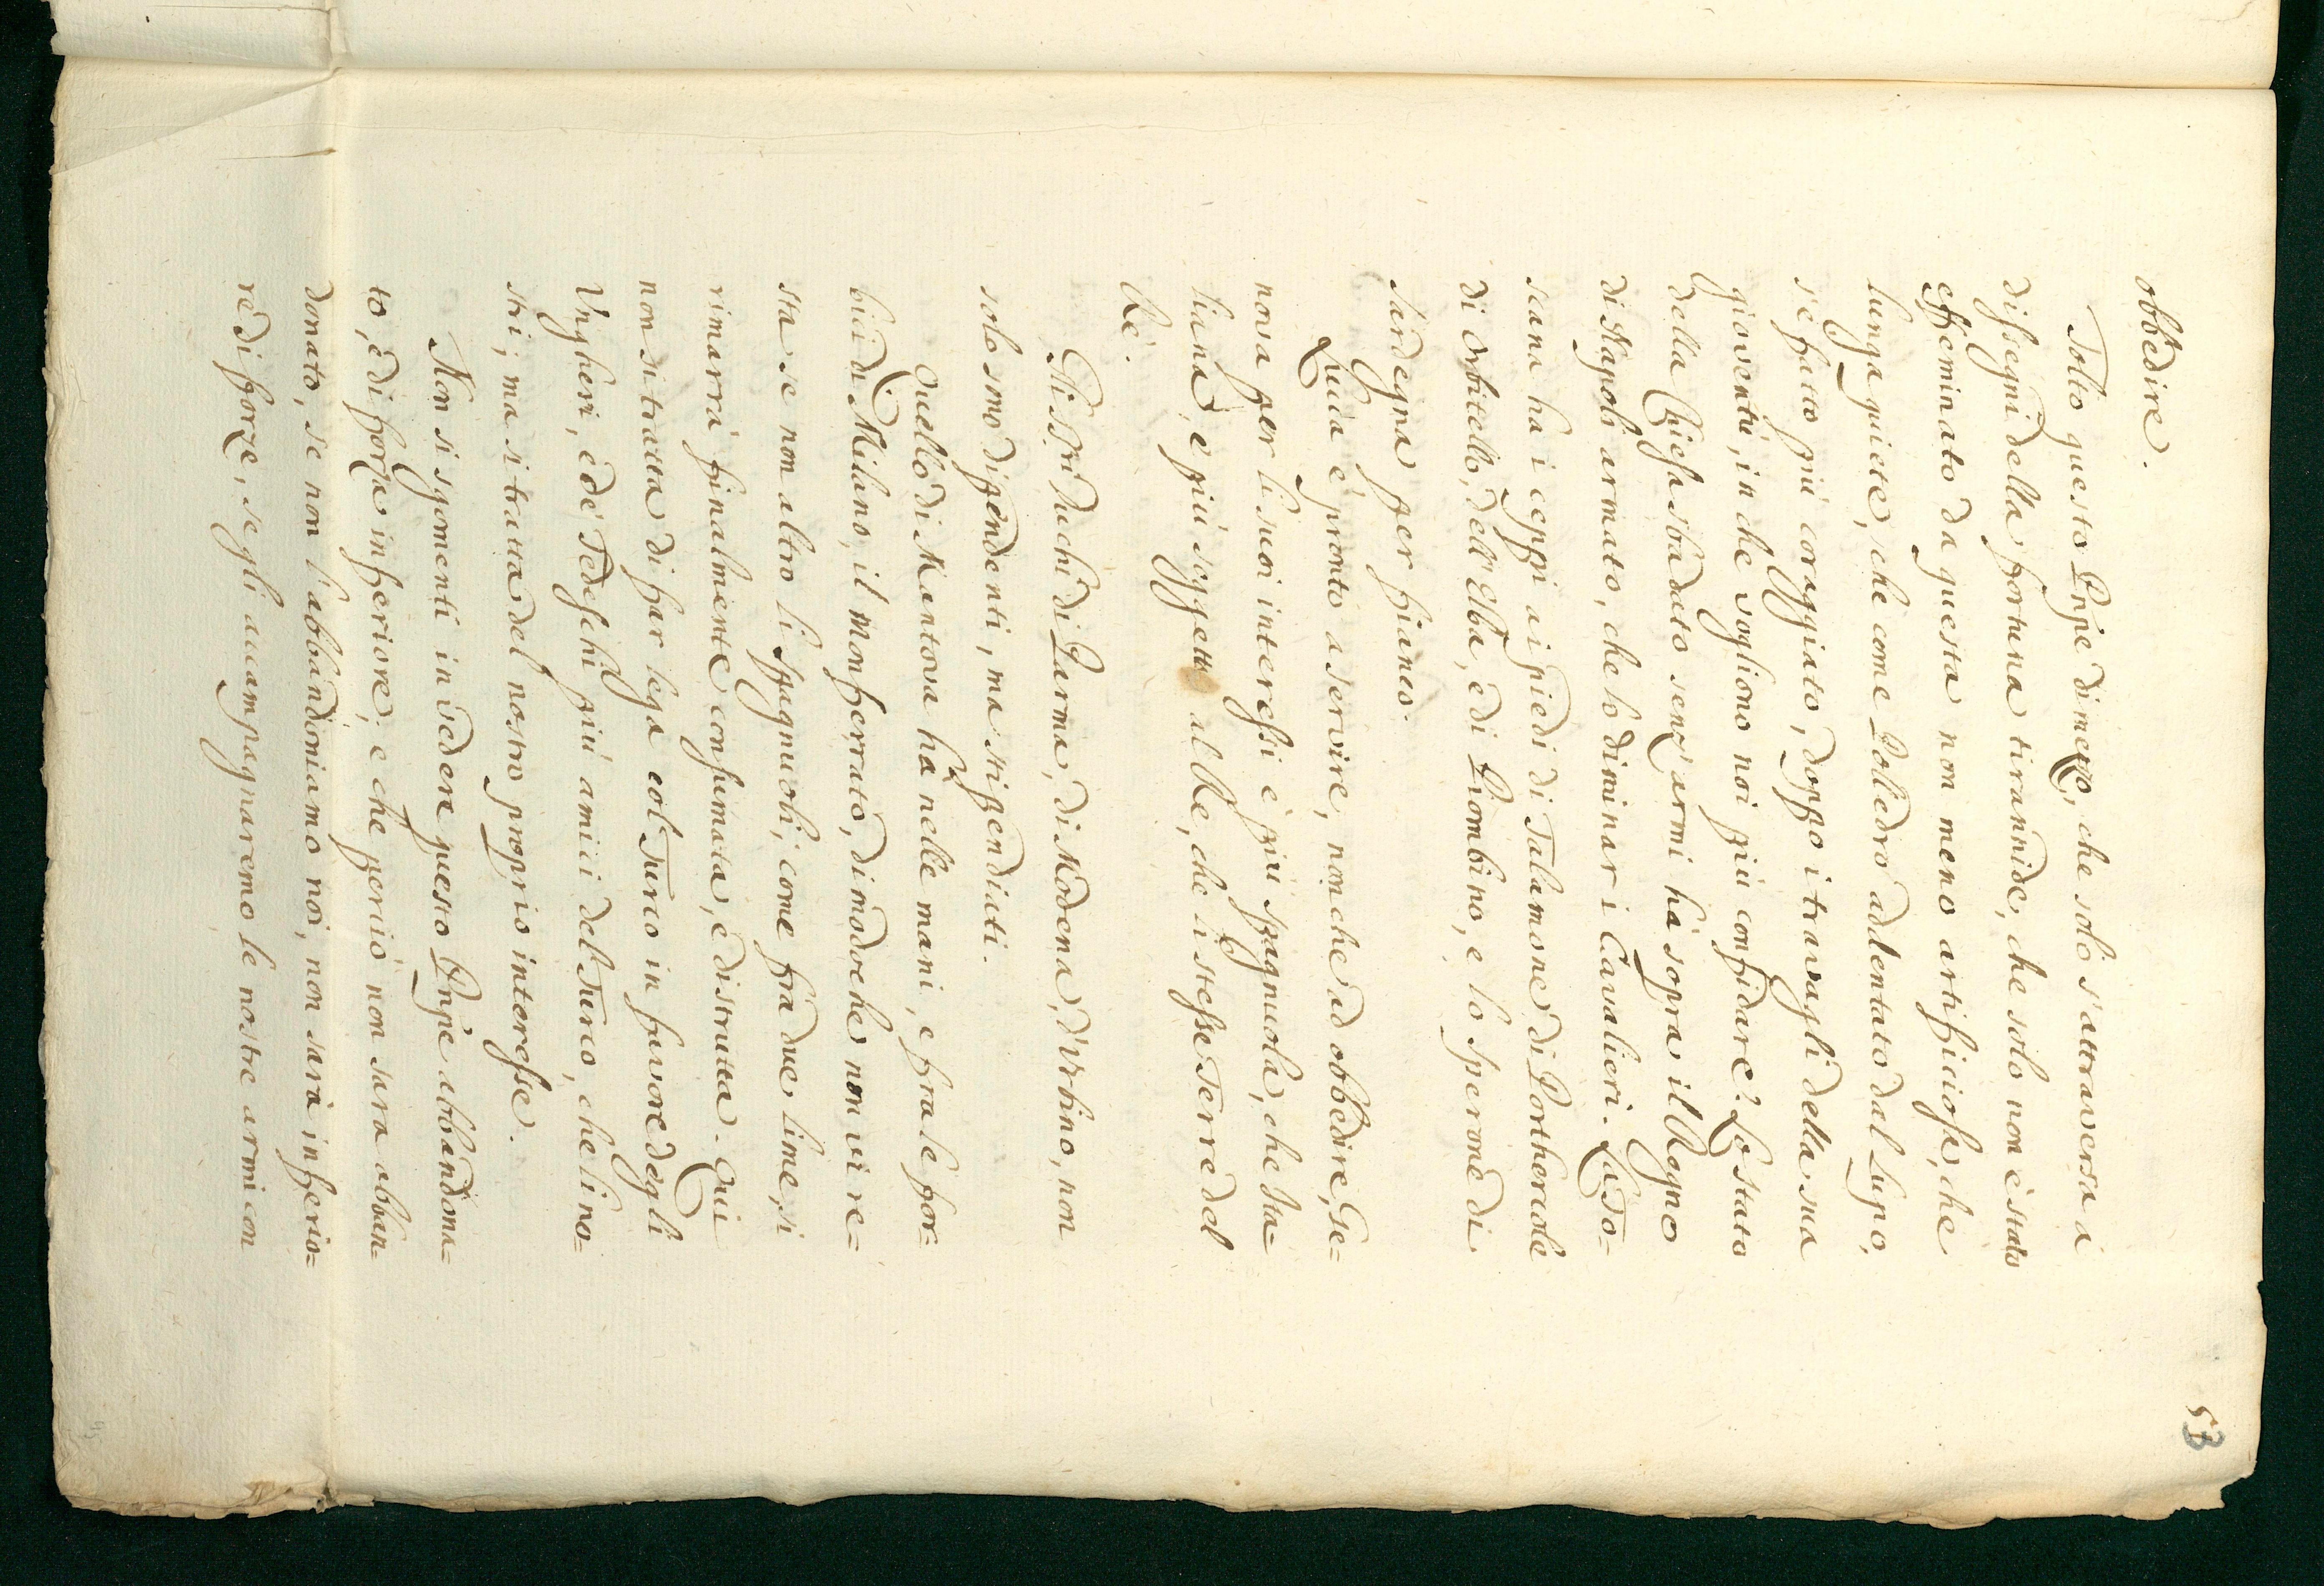 53
obbedire.
Tolto questo Pnpe di mezzo, che solo s'attraversa a
dissegni della fortuna tirannide, che solo non è stato
effeminato da questa non meno artificiosa, che
lunga quiete, che come Polledro addentato dal Lupo,
s'è fatto più coraggiato, doppo i travagli della sua
gioventù, in che vogliono noi più confidare? Lo stato
della Chiesa sbadato senz'armi hà sopra il Regno
di Napoli armato, che lo dominar i Cavalieri. La To=
scana ha i ceppi ai piedi di Talamone di Porthercole
di Orbitello, dell'Elba, e di Piombino, e lo sperone di
Sardegna per fianco.
Lucca è pronto a servire, nonche ad obbedire, Ge=
nova per li suoi interessi è più spagnuola, che Ita=
liana, e più soggetta al Re, che l'istesse Terre del
Rè.
Gli SSri Duchi di Parma, di Modena, d'Urbino, non
solo sono dipendenti, ma stipendiati.
Quello di Mantova hà nelle mani, e fra le for=
bici di Milano, il Monferrato, di modo che non vi re=
sta se non altro li spagnuoli, come frà due lime, si
rimarrà finalmente consumata, e distrutta. Qui
non si tratta di far lega col Turco in favore degli
Ungheri, e de' Tedeschi più amici del Turco, che li no=
stri; ma si tratta del nostro proprio interesse.
Non si sgomenti in vedere questo Pnpe abbandona=
to, e di forza inferiore; e che perciò non sara abban=
donato, se non l'abbandoniamo noi, non sarà inferio=
re di forze, se gli accampagnaremo le nostre armi con